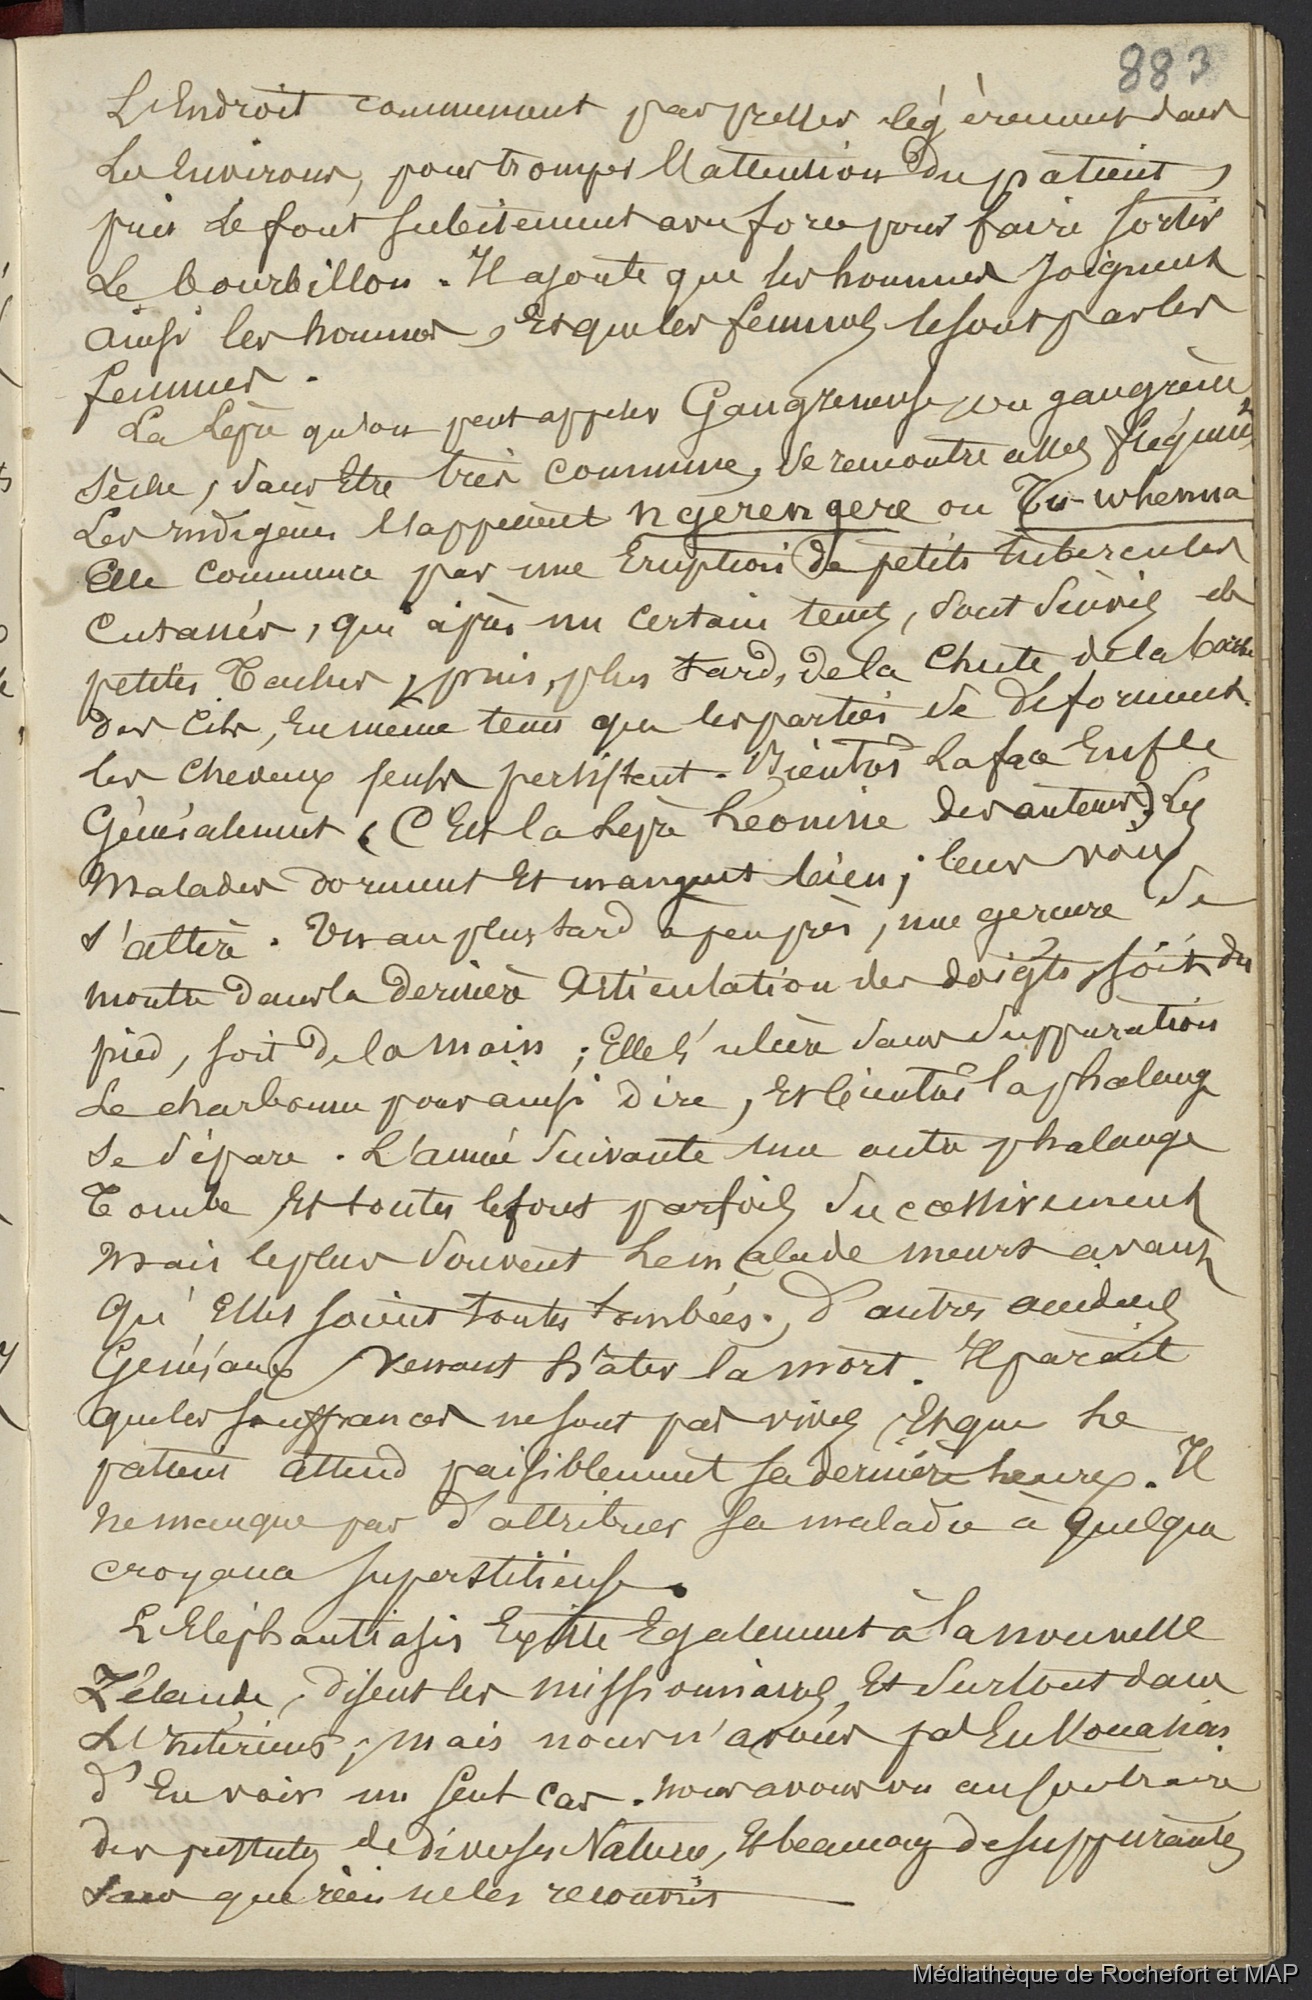 883
L'Endroit commencent par presser légèrement dans
Les Environs, pour tromper l'attention du patient,
puis le font subitement avec force pour faire sortir
Le bourbillon. Il ajoute que les hommes soignent
ainsi les hommes, Et que les femmes le sont par les
femmes.
La Lèpre qu'on peut appeler Gangreneuse, ou gangrène
sèche, sans Etre très commune, se remontre assez fréquem.t
Les indigènes l'appellent ngerengere ou Tu-whenna
Elle commence par une Eruption de petits tubercules
Cutanés, qui après un certain tems, sont suivis de
petites Taches, puis, plus tard, de la Chute de la barbe
des Cils, En même tems que les parties se déforment.
les Cheveux seuls persistent. Bientôt La face Enfle
Généralement (C'Est la Lèpre Léonine des auteurs) Les
Malades dorment Et mangent bien; leur voix
s'altère. Un an plus tard à peu près, une gerçure se
montre dans la dernière Articulation des doigts, soit du
pied, soit de la main; Elle s'ulcère sans suppuration
Se charbonne pour ainsi dire, Et bientôt la phalange
se sépare. L'année suivante une autre phalange
Tombe Et toutes le font parfois successivement
Mais le plus souvent Le malade meurt avant
Qu'Elles soient toutes tombées; d'autres accidens
Généraux venant hâter la mort. Il paraît
que les souffrances ne sont pas vives, Et que Le
patient attend paisiblement sa dernière heure. Il
ne manque pas d'attribuer sa maladie à Quelque
croyance superstitieuse.
L'Eléphantiasis Existe Egalement à la nouvelle
Zélande, disent les missionnaires, Et surtout dans
L'Intérieur; mais nous n'avons pas Eu l'occasion
d'En voir un seul cas. nous avons vu au contraire
des pustules de diverses Natures, Et beaucoup de suppurantes
sans que rien ne les recouvrit
Médiathèque de Rochefort et MAP